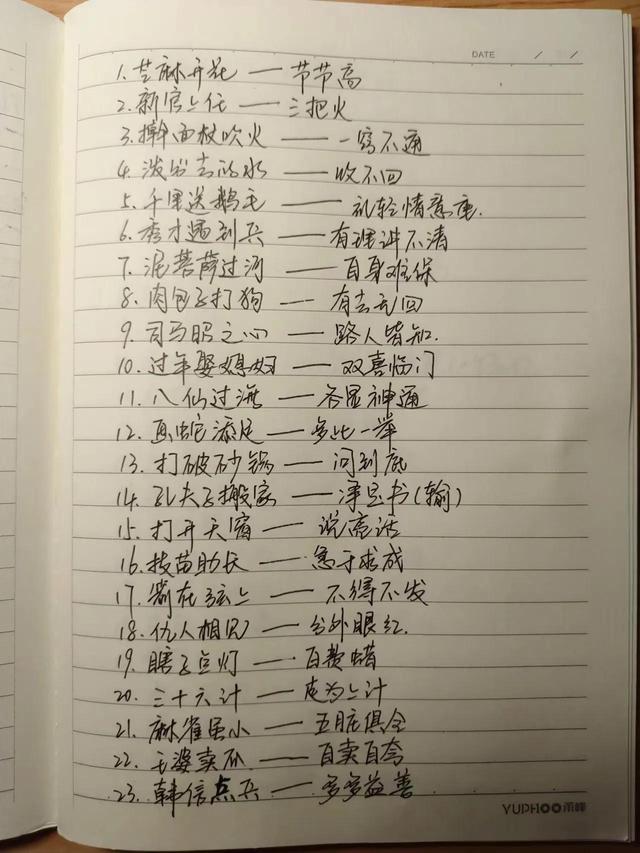 DATE / /
1. 芝麻开花 —— 节节高
2. 新官上任 —— 三把火
3. 擀面杖吹火 —— 一窍不通
4. 泼出去的水 —— 收不回
5. 千里送鹅毛 —— 礼轻情意重.
6. 秀才遇到兵 —— 有理讲不清
7. 泥菩萨过河 —— 自身难保
8. 肉包子打狗 —— 有去无回
9. 司马昭之心 —— 路人皆知.
10. 过年娶媳妇 —— 双喜临门
11. 八仙过海 —— 各显神通
12. 画蛇添足 —— 多此一举
13. 打破砂锅 —— 问到底
14. 孔夫子搬家 —— 净是书(输)
15. 打开天窗 —— 说亮话
16. 拔苗助长 —— 急于求成
17. 箭在弦上 —— 不得不发
18. 仇人相见 —— 分外眼红.
19. 瞎子点灯 —— 白费蜡
20. 三十六计 —— 走为上计
21. 麻雀虽小 —— 五脏俱全
22. 王婆卖瓜 —— 自卖自夸
23. 韩信点兵 —— 多多益善
YUPHOO雨峰